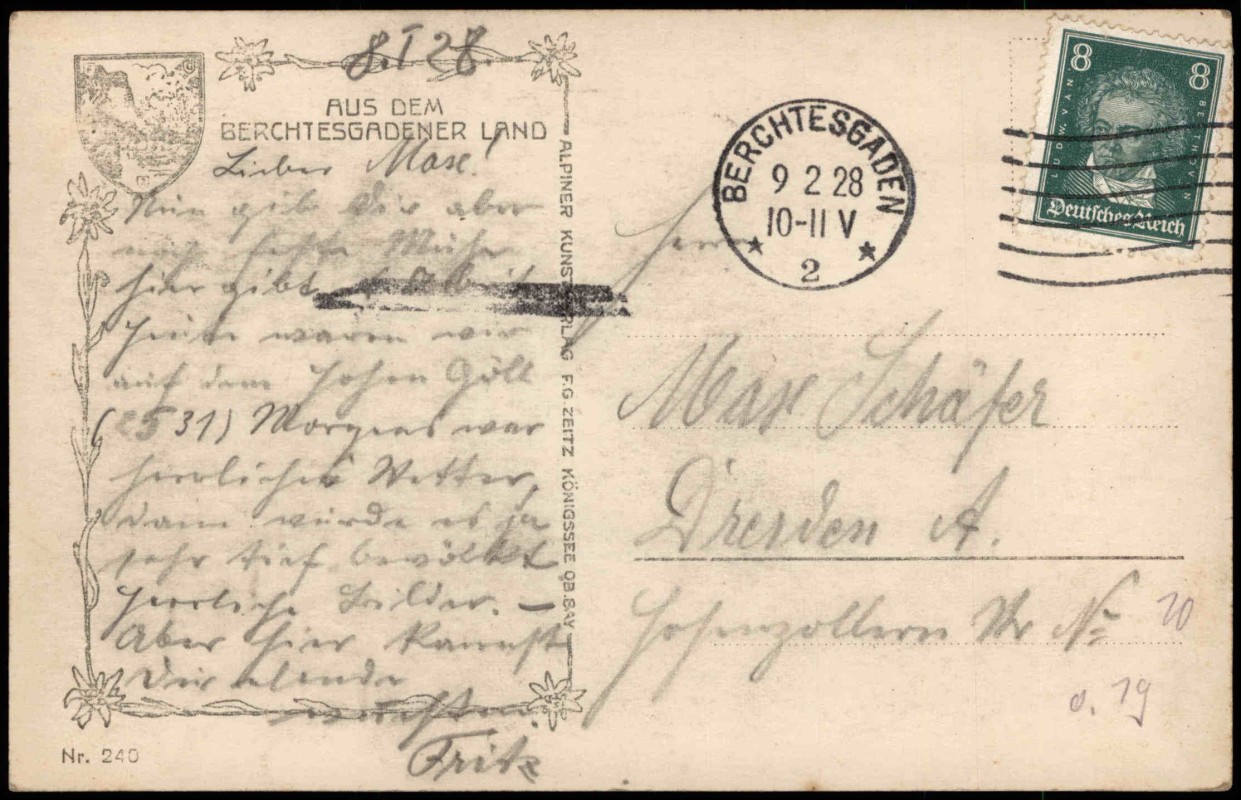 8.I 28
AUS DEM
BERCHTESGADENER LAND
Lieber Maxe!
Nun gib Dir aber
Mühe
hier gibt
waren wir
auf dem hohen Göll
(2531) Morgens war
herrliches Wetter,
dann wurde es ja
sehr tief bewölkt
herrliche Bilder. —
Aber hier kannst
Du
Fritz
Nr. 240
ALPINER KUNSTVERLAG F.G. ZEITZ KÖNIGSSEE OB. BAY
BERCHTESGADEN
9 2 28
10-11 V
2
8 8
LUDW. VAN BEETHOVEN
Deutsches Reich
Herrn
Max Schäfer
Dresden A.
Hohenzollern Str No 20
0.19